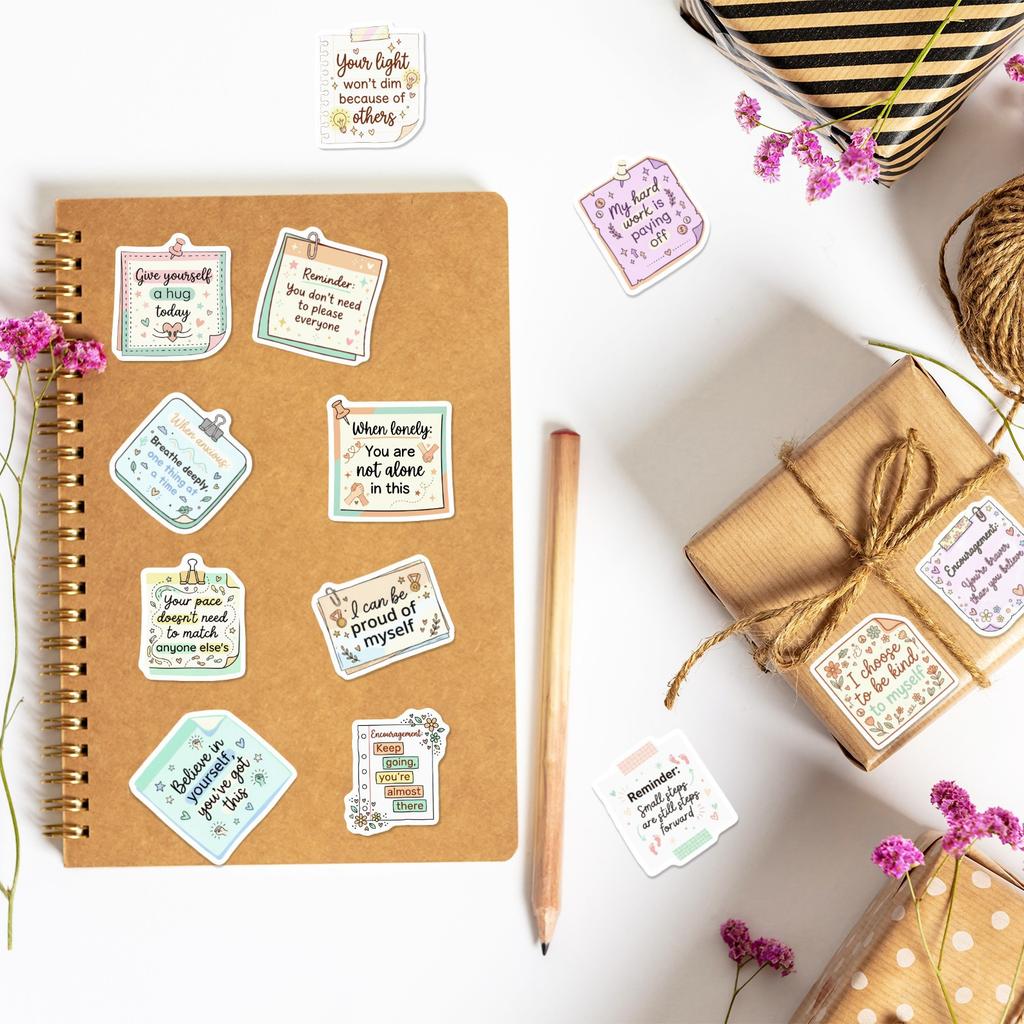 Your light
won't dim
because of
others
My hard
work is
paying
off
Give yourself
a hug
today
Reminder:
You don't need
to please
everyone
When anxious:
Breathe deeply,
one thing at
a time
When lonely:
You are
not alone
in this
Your pace
doesn't need
to match
anyone else's
I can be
proud of
myself
Encouragement:
You're braver
than you believe
I choose
to be kind
to myself
Believe in
yourself,
you've got
this
Encouragement:
Keep
going,
you're
almost
there
Reminder:
Small steps
are still steps
forward